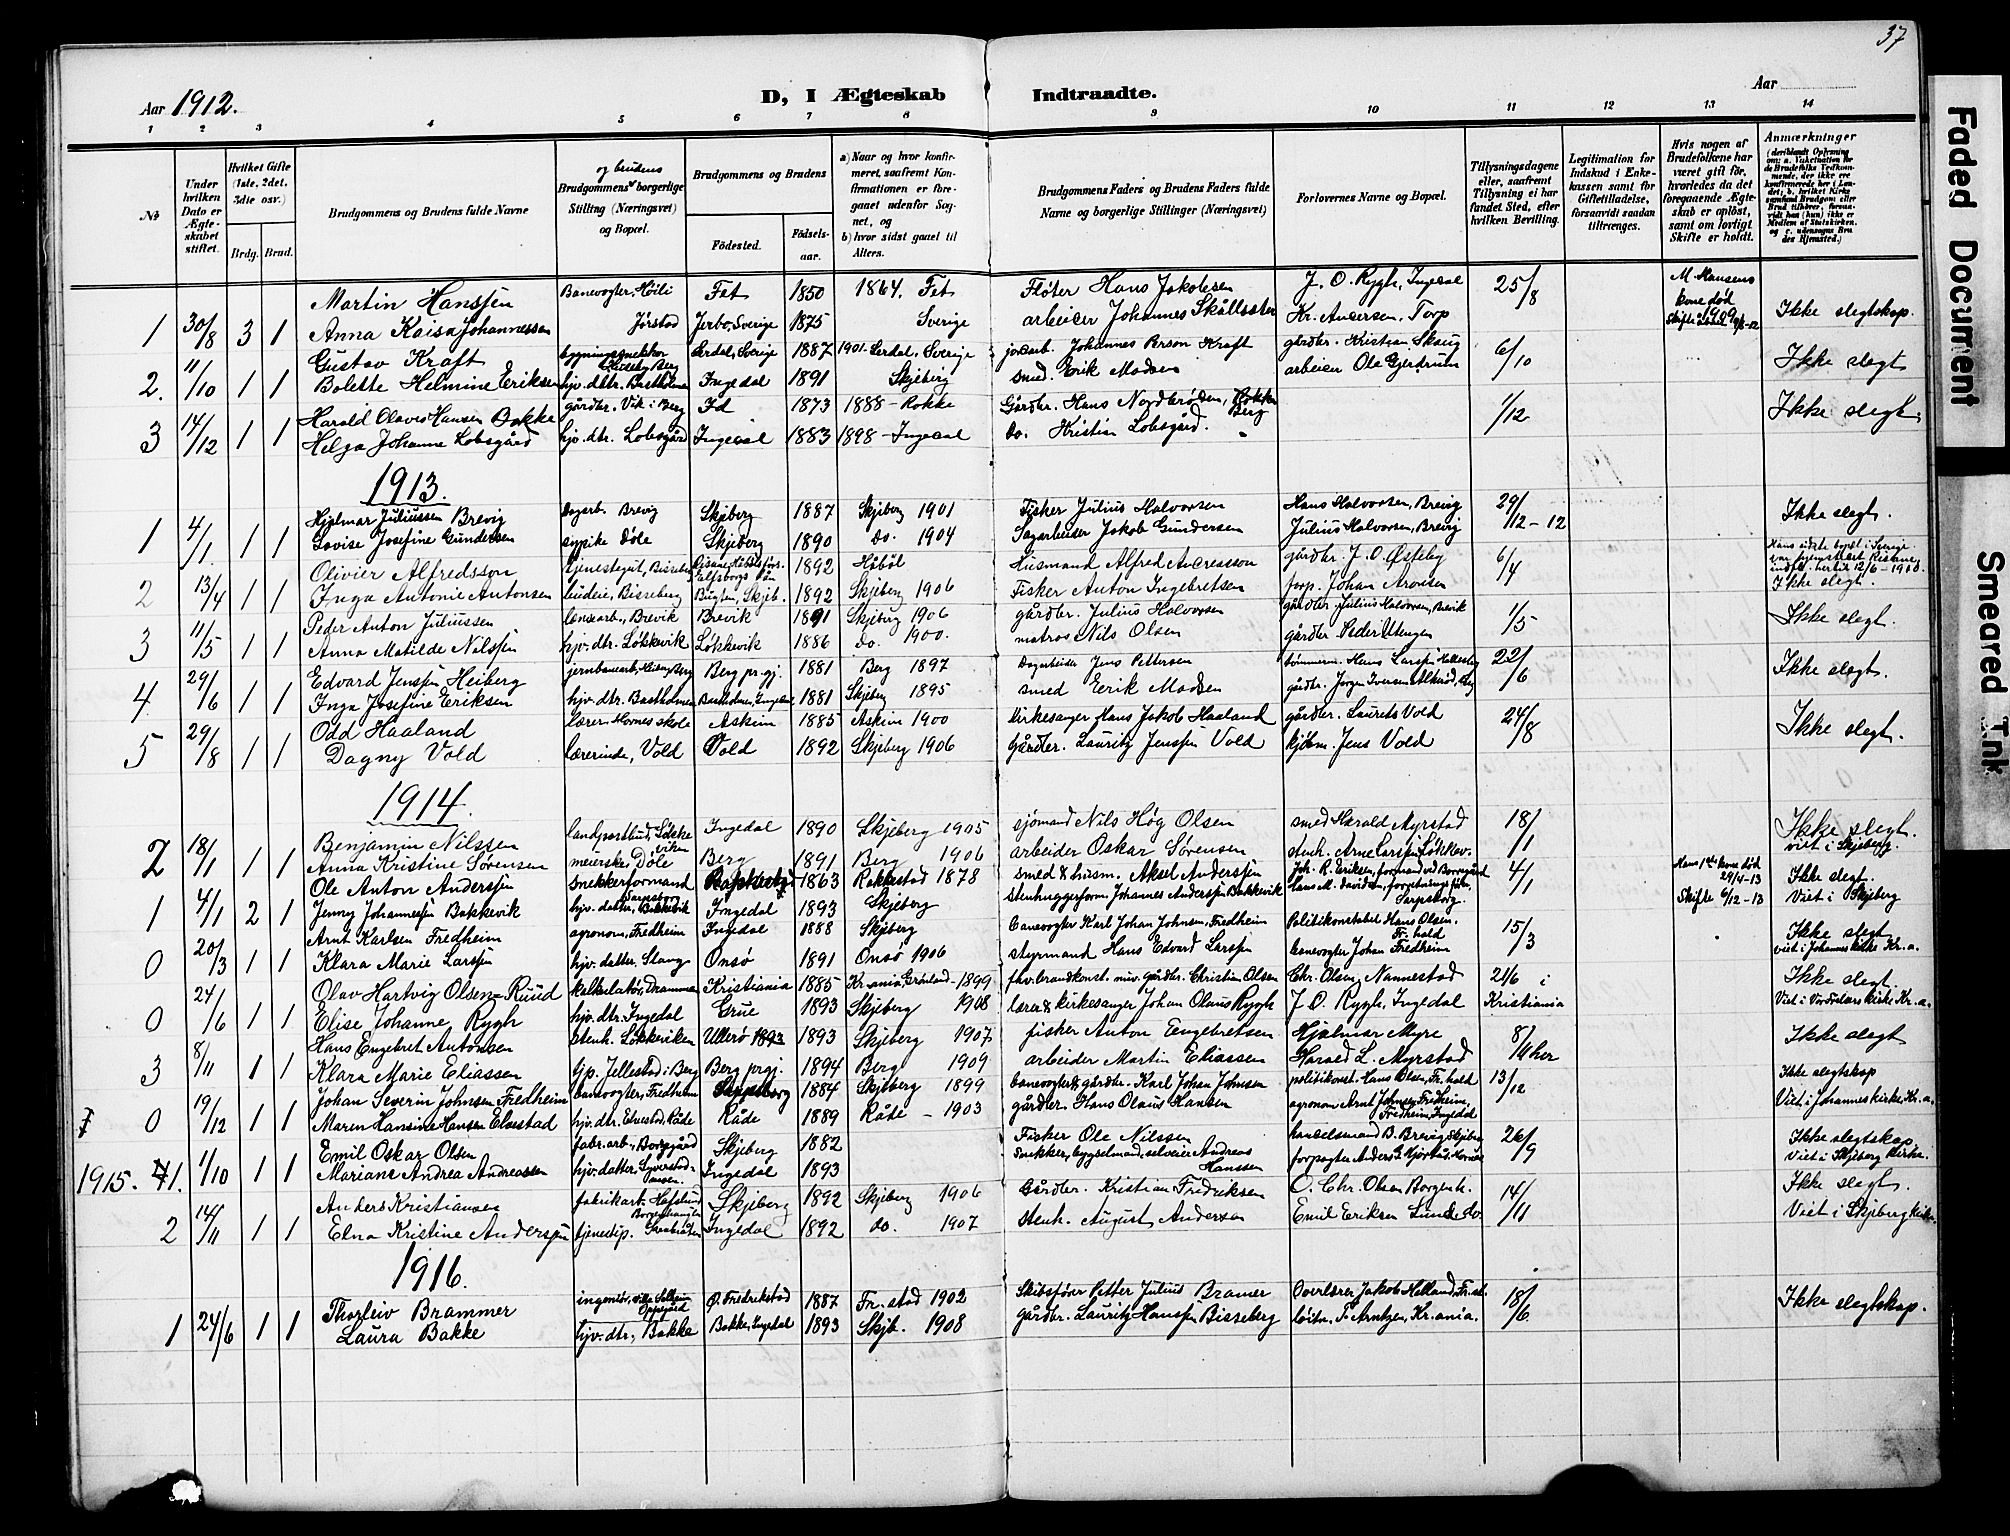 37
Aar 1912.
D, I Ægteskab Indtraadte.
Aar
1 2 3 4 5 6 7 8 9 10 11 12 13 14
No
Under hvilken Dato er Ægteskabet stiftet.
Hvilket Gifte (1ste, 2det, 3die osv.)
Brdg. Brud.
Brudgommens og Brudens fulde Navne
og brudens
Brudgommens borgerlige Stilling (Næringsvei) og Bopæl.
Brudgommens og Brudens
Fødested.
Fødselsaar.
a) Naar og hvor konfirmeret, saafremt Konfirmationen er foregaaet udenfor Sognet, og
b) hvor sidst gaaet til Alters.
Brudgommens Faders og Brudens Faders fulde Navne og borgerlige Stillinger (Næringsvei)
Forlovernes Navne og Bopæl.
Tillysningsdagene eller, saafremt Tillysning ei har fundet Sted, efter hvilken Bevilling.
Legitimation for Indskud i Enkekassen samt for Giftetilladelse, forsaavidt saadan tiltrænges.
Hvis nogen af Brudefolkene har været gift før, hvorledes da det foregaaende Ægteskab er opløst, samt om lovligt Skifte er holdt.
Anmærkninger
Martin Hanssen Banevogter, Høili Fet 1850 1864. Fet Fløter Hans Jakobsen J. O. Rygh, Ingedal 25/8 M. Hansens kone død 1909
1 30/8 3 1 Anna Kaisa Johannessen Jørstad Jerbo, Sverige 1875 Sverige arbeider Johannes Skållseter Kr. Andersen, Torp Ikke slegtskap.
Gustav Kraft bygningssnekker Lerdal, Sverige 1887 1901. Lerdal, Sverige Johannes Person Kraft gårdbr. Kristian Skaug 6/10
2. 11/10 1 1 Bolette Helmine Eriksen hjv. dtr. Bastholmen Ingedal 1891 Skjeberg smed. Erik Madsen arbeider Ole Gjerdrum Ikke slegt
Harald Olaves Hansen Bakke gårdbr. Vik i Berg Id 1873 1888 - Rokke Gårdbr. Hans Nordbrøden, Berg 1/12
3 14/12 1 1 Helga Johanne Lobsgård hjv. dtr. Lobsgård Ingedal 1883 1898 - Ingedal do. Kristin Lobsgård. Ikke slegt.
1913.
Hjalmar Juliussen Brevig Brevig Skjeberg 1887 Skjeberg 1901 Fisker Julius Halvorsen Hans Halvorsen, Brevig 29/12-12
1 4/1 1 1 Lovise Josefine Gundersen sypike Døle Skjeberg 1890 do. 1904 Sagarbeider Jakob Gundersen Julius Halvorsen, Brevig Ikke slegt.
Olivier Alfredsson tjenestegut, Bisseberg 1892 Håbøl Husmand Alfred Andreasson gårdbr. J. O. Østeby 6/4
2 13/4 1 1 Inga Antonie Antonsen budeie, Bisseberg Bugten, Skjeb. 1892 Skjeberg 1906 Fisker Anton Ingebretsen forp. Johan Aronsen Ikke slegt.
Peder Anton Juliussen lænsearb., Brevik Brevik 1891 Skjeberg 1906 gårdbr. Julius Halvorsen gårdbr. Julius Halvorsen, Brevik 1/5
3 11/5 1 1 Anna Matilde Nilssen hjv. dtr. Løkkevik Løkkevik 1886 do. 1900. matros Nils Olsen gårdbr. Peder Utengen Ikke slegt.
Edvard Jenssen Heiberg Berg pr.gj. 1881 Berg 1897 Dagarbeider Jens Pettersen tømmerm. Hans Larssen 22/6
4. 29/6 1 1 Inga Josefine Eriksen hjv. dtr. Bastholmen Bastholmen, Ingedal 1881 Skjeberg 1895 smed Erik Madsen gårdbr. Jørgen Iversen Ikke slegt.
Odd Haaland lærer Hornes skole Askim 1885 Askim 1900 Kirkesanger Hans Jakob Haaland gårdbr. Laurits Vold 24/8
5 29/8 1 1 Dagny Vold lærerinde, Vold Vold 1892 Skjeberg 1906 Gårdbr. Lauritz Jenssen Vold kjøbm. Jens Vold Ikke slegt.
1914.
Benjamin Nilssen landpostbud, Løkkeviken Ingedal 1890 Skjeberg 1905 sjømand Nils Høg Olsen smed Harald Myrstad 18/1 Ikke slegt.
2 18/1 1 1 Anna Kristine Sørensen meierske Døle Berg 1891 Berg 1906 arbeider Oskar Sørensen Stenh. Arne Larssen Løkkev. viet i Skjeberg.
Ole Anton Anderssen snekkerformand Sarpsborg Rakkestad 1863 Rakkestad 1878 smed & husm. Aksel Anderssen 4/1 Hans 1ste kone død 29/4-13 Ikke slegt.
1 4/1 2 1 Jenny Johannessen Bakkevik hjv. datter, Bakkevik Ingedal 1893 Skjeberg stenhuggerform. Johannes Anderssen Bakkevik Skifte 6/12-13 Viet i Skjeberg
Arnt Karlsen Fredheim agronom, Fredheim Ingedal 1888 Skjeberg banevogter Karl Johan Johnsen, Fredheim Politikonstabel Hans Olsen. Fr.hald 15/3 Ikke slegt
0 20/3 1 1 Klara Marie Larssen hjv. datter, Stang Onsø 1891 Onsø 1906 styrmand Hans Edvard Larssen banevogter Johan Fredheim viet i Johannes kirke Kr.a.
Olav Hartvig Olsen-Ruud kalkulatør, Drammen Kristiania 1885 Kr.ania, Grønland-1899 fhv. brandkonst. nuv. gårdbr. Christian Olsen Chr. Olsen, Nannestad 21/6 i Ikke slegt.
0 24/6 1 1 Elise Johanne Rygh hjv. dtr. Ingedal Grue 1893 Skjeberg 1908 lærer & kirkesanger Johan Olaus Rygh J. O. Rygh, Ingedal Kristiania
Hans Engebret Antonsen Stenh. Løkkeviken Ullerø 1893 1893 Skjeberg 1907 fisker Anton Engebretsen Hjalmar Myre 8/11 her Ikke slegt
3 8/11 1 1 Klara Marie Eliassen tjp. Jellestad i Berg Berg prgj. 1894 Berg 1909 arbeider Martin Eliassen Harald L. Myrstad
Johan Severin Johnsen Fredheim banevogter, Fredheim 1884 Skjeberg 1899 banevogter & gårdbr. Karl Johan Johnsen politikonst. Hans Olsen, Fr.hald 13/12 Ikke slegtskap
0 19/12 1 1 Maren Hansine Hansen Elvestad hjv. dtr. Elvestad, Råde Råde 1889 Råde - 1903 gårdbr. Hans Olaus Hansen agronom Arnt Johnsen Fredheim, Fredheim, Ingedal Viet i Johannes kirke Kr.a.
Emil Oskar Olsen fabr. arb., Borggård Skjeberg 1882 Fisker Ole Nilssen handelsmand B. Brevig, Skjeberg 26/9 Ikke slegtskap
1915. 1. 1/10 1 1 Mariane Andrea Andreassen hjv. datter Ingedal 1893 Snekker, bygselmand, selveier Andreas Hanssen Viet i Skjeberg kirke.
Anders Kristiansen fabrikarb. Hafslund Skjeberg 1892 Skjeberg 1906 Gårdbr. Kristian Fredriksen O. Chr. Olsen Borgenh. 14/11 Ikke slegt.
2 14/11 1 1 Elna Kristine Anderssen tjenestep. Ingedal 1892 do. 1907 Stenh. August Anderson Emil Eriksen Lunde do. Viet i Skjeberg kirke.
1916.
Thorleiv Brammer ingeniør, villa Solheim Oppegård Ø. Fredrikstad 1887 Fr.stad 1902 Skibsfører Petter Julius Bramer Overlærer Jakob Helland, Fr.st. 18/6 Ikke slegtskap.
1 24/6 1 1 Laura Bakke hjv. dtr., Bakke Bakke, Ingedal 1893 Skjb. 1908 gårdbr. Lauritz Hanssen Bisseberg løitn. F. Arntzen, Kr.ania.
Faded Document
Smeared Ink